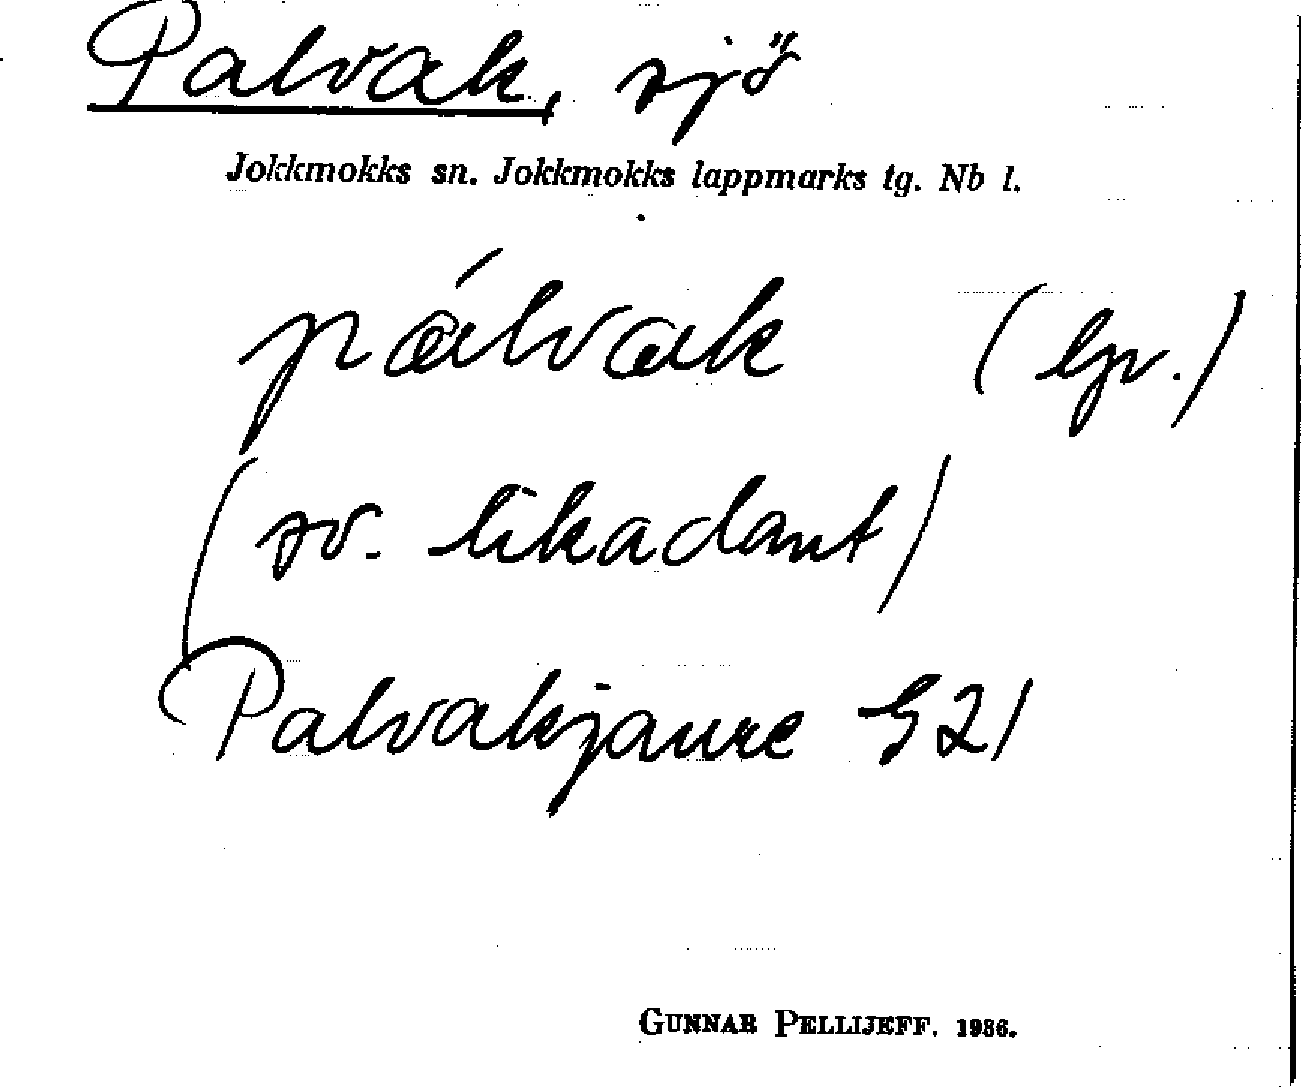 Palvak, sjö
Jokkmokks sn. Jokkmokks lappmarks tg. Nb l.
pálvak (lpr.)
(sv. likadant)
Palvakjaure G21
GUNNAR PELLIJEFF. 1936.